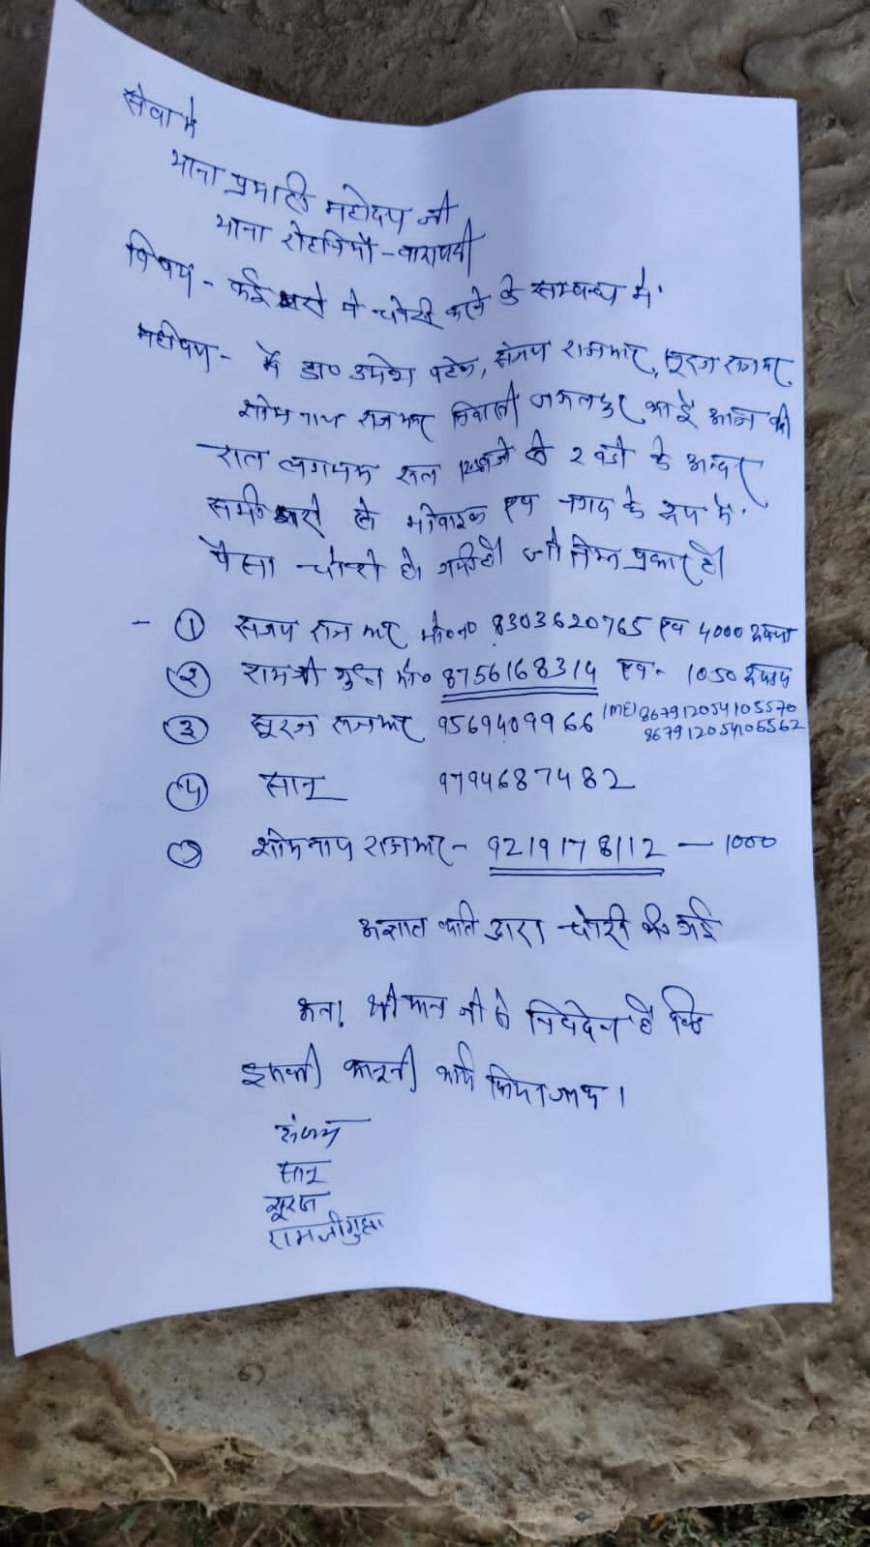 सेवा मे
थाना प्रभारी महोदय जी
थाना रोहनियाँ - वाराणसी
विषय - कई घरो मे चोरी करने के सम्बन्ध मे.
महोदय - मै डा० उमेश पटेल, संजय राजभर, सूरज राजभर,
सोमनाथ राजभर निवासी आज की
रात लगभग रात 12 बजे से 2 बजे के अन्दर
सभी घरो से मोबाइल एव नगद के रूप मे.
पैसा चोरी हो गयी है जो निम्न प्रकार है।
- ① संजय राजभर मो०न० 8303620765 एव 4000 रूपया
② रामजी गुप्ता मो० 8756168314 एव - 1050 रूपया
③ सूरज राजभर 9569409966 IMEI 867912054105570
867912054106562
④ सानू 9794687482
सोमनाथ राजभर - 9219178112 — 1000
अज्ञात व्यक्ति द्वारा चोरी की गई
अतः श्रीमान जी से निवेदन है कि
इसकी कानूनी कार्य किया जाय ।
संजय
सानू
सूरज
रामजी गुप्ता